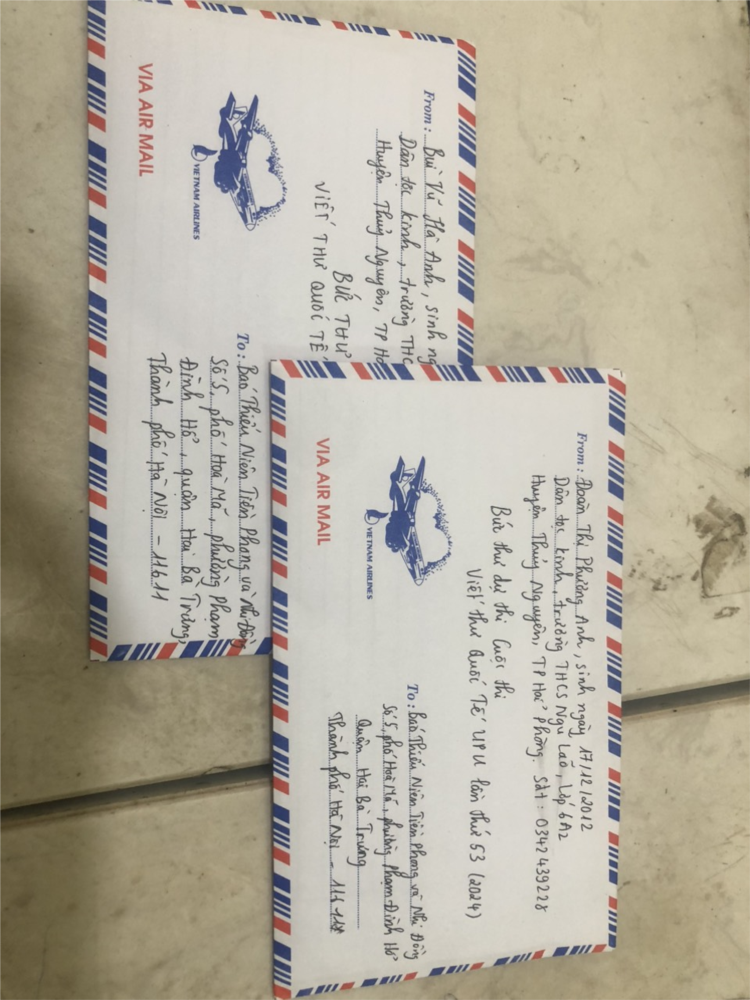 From: Bùi Vũ Hà Anh, sinh ng
Dân tộc kinh, trường THC
Huyện Thuỷ Nguyên, TP Hả
BỨC THƯ
VIẾT THƯ QUỐC TẾ
VIETNAM AIRLINES
VIA AIR MAIL
To: Báo Thiếu Niên Tiền Phong và Nhi Đồng
Số 5, phố Hoà Mã, phường Phạm
Đình Hổ, quận Hai Bà Trưng,
Thành phố Hà Nội - 11611
From: Đoàn Thị Phương Anh, sinh ngày 17/12/2012
Dân tộc kinh, trường THCS Ngũ Lão, Lớp 6A2
Huyện Thuỷ Nguyên, TP Hải Phòng. Sđt: 0342439228
Bức thư dự thi Cuộc thi
Viết thư Quốc Tế UPU lần thứ 53 (2024)
VIETNAM AIRLINES
VIA AIR MAIL
To: Báo Thiếu Niên Tiền Phong và Nhi Đồng
Số 5, phố Hoà Mã, phường Phạm Đình Hổ
Quận Hai Bà Trưng
Thành phố Hà Nội -